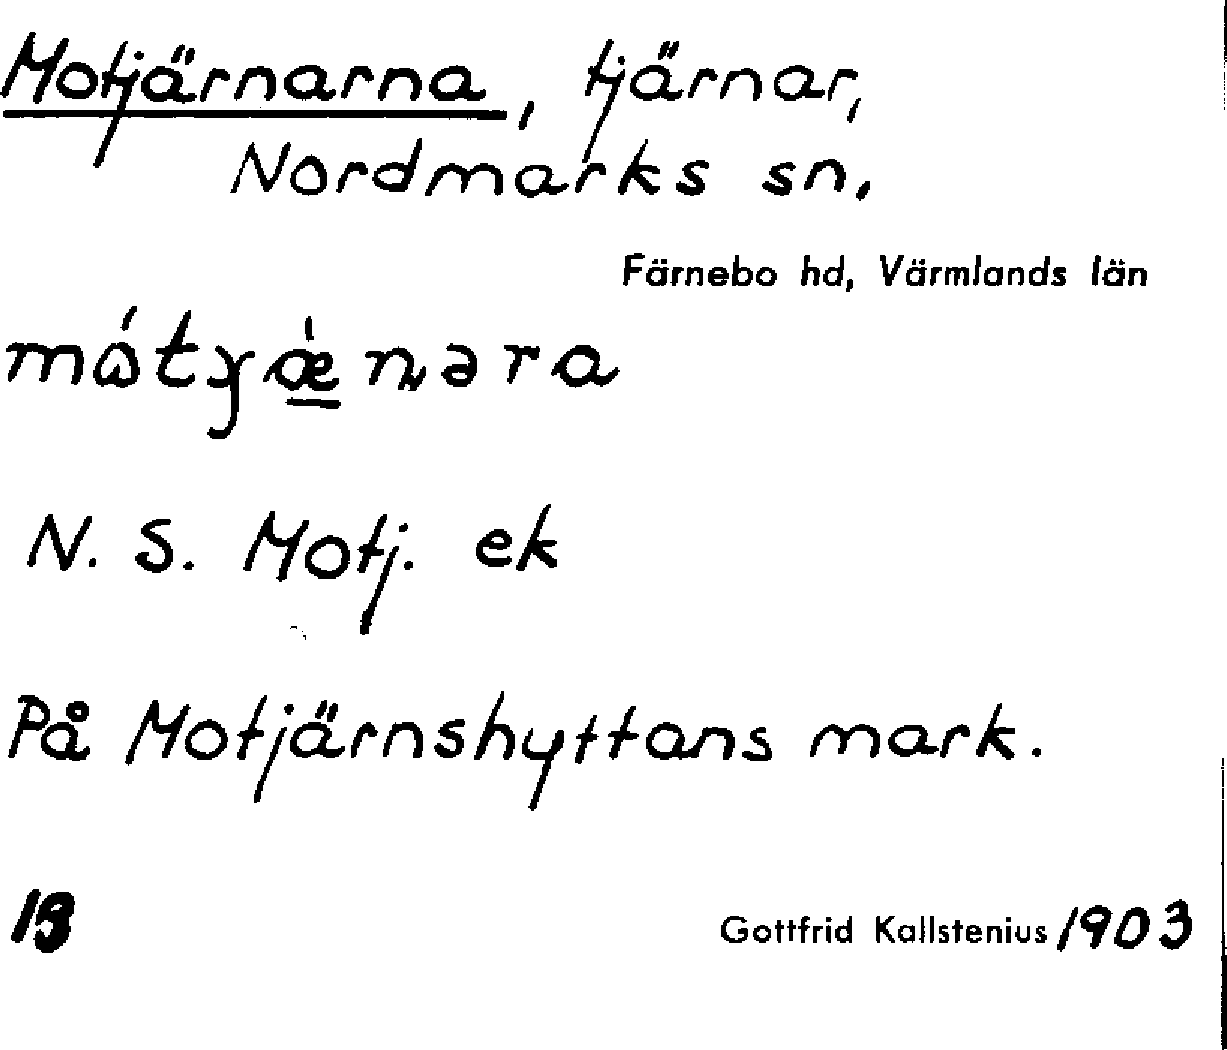 Motjärnarna, tjärnar,
Nordmarks sn.
Färnebo hd, Värmlands län
N. S. Motj. ek
På Motjärnshyttans mark.
Gottfrid Kallstenius 1903